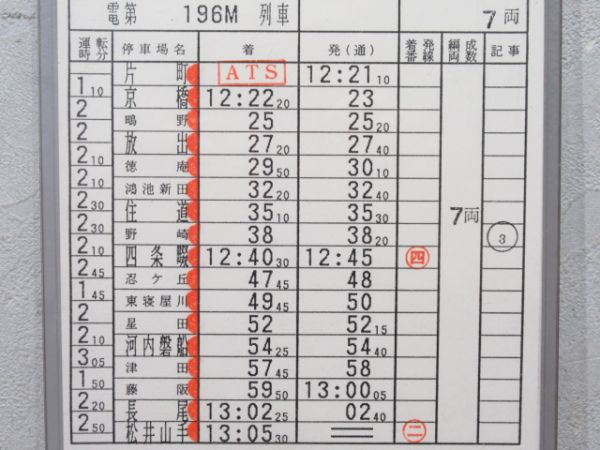 電第 196M 列車 7両
運転時分 停車場名 着 発(通) 着発番線 編成両数 記事
片町 ATS 12:21 10
1 10 京橋 12:22 20 23
2 鴫野 25 25 20
2 放出 27 20 27 40
2 10 徳庵 29 50 30 10
2 10 鴻池新田 32 20 32 40
2 30 住道 35 10 35 30 7両
2 30 野崎 38 38 20 3
2 10 四条畷 12:40 30 12:45 四
2 45 忍ケ丘 47 45 48
1 45 東寝屋川 49 45 50
2 星田 52 52 15
2 10 河内磐船 54 25 54 40
3 05 津田 57 45 58
1 50 藤阪 59 50 13:00 05
2 20 長尾 13:02 25 02 40
2 50 松井山手 13:05 30 二